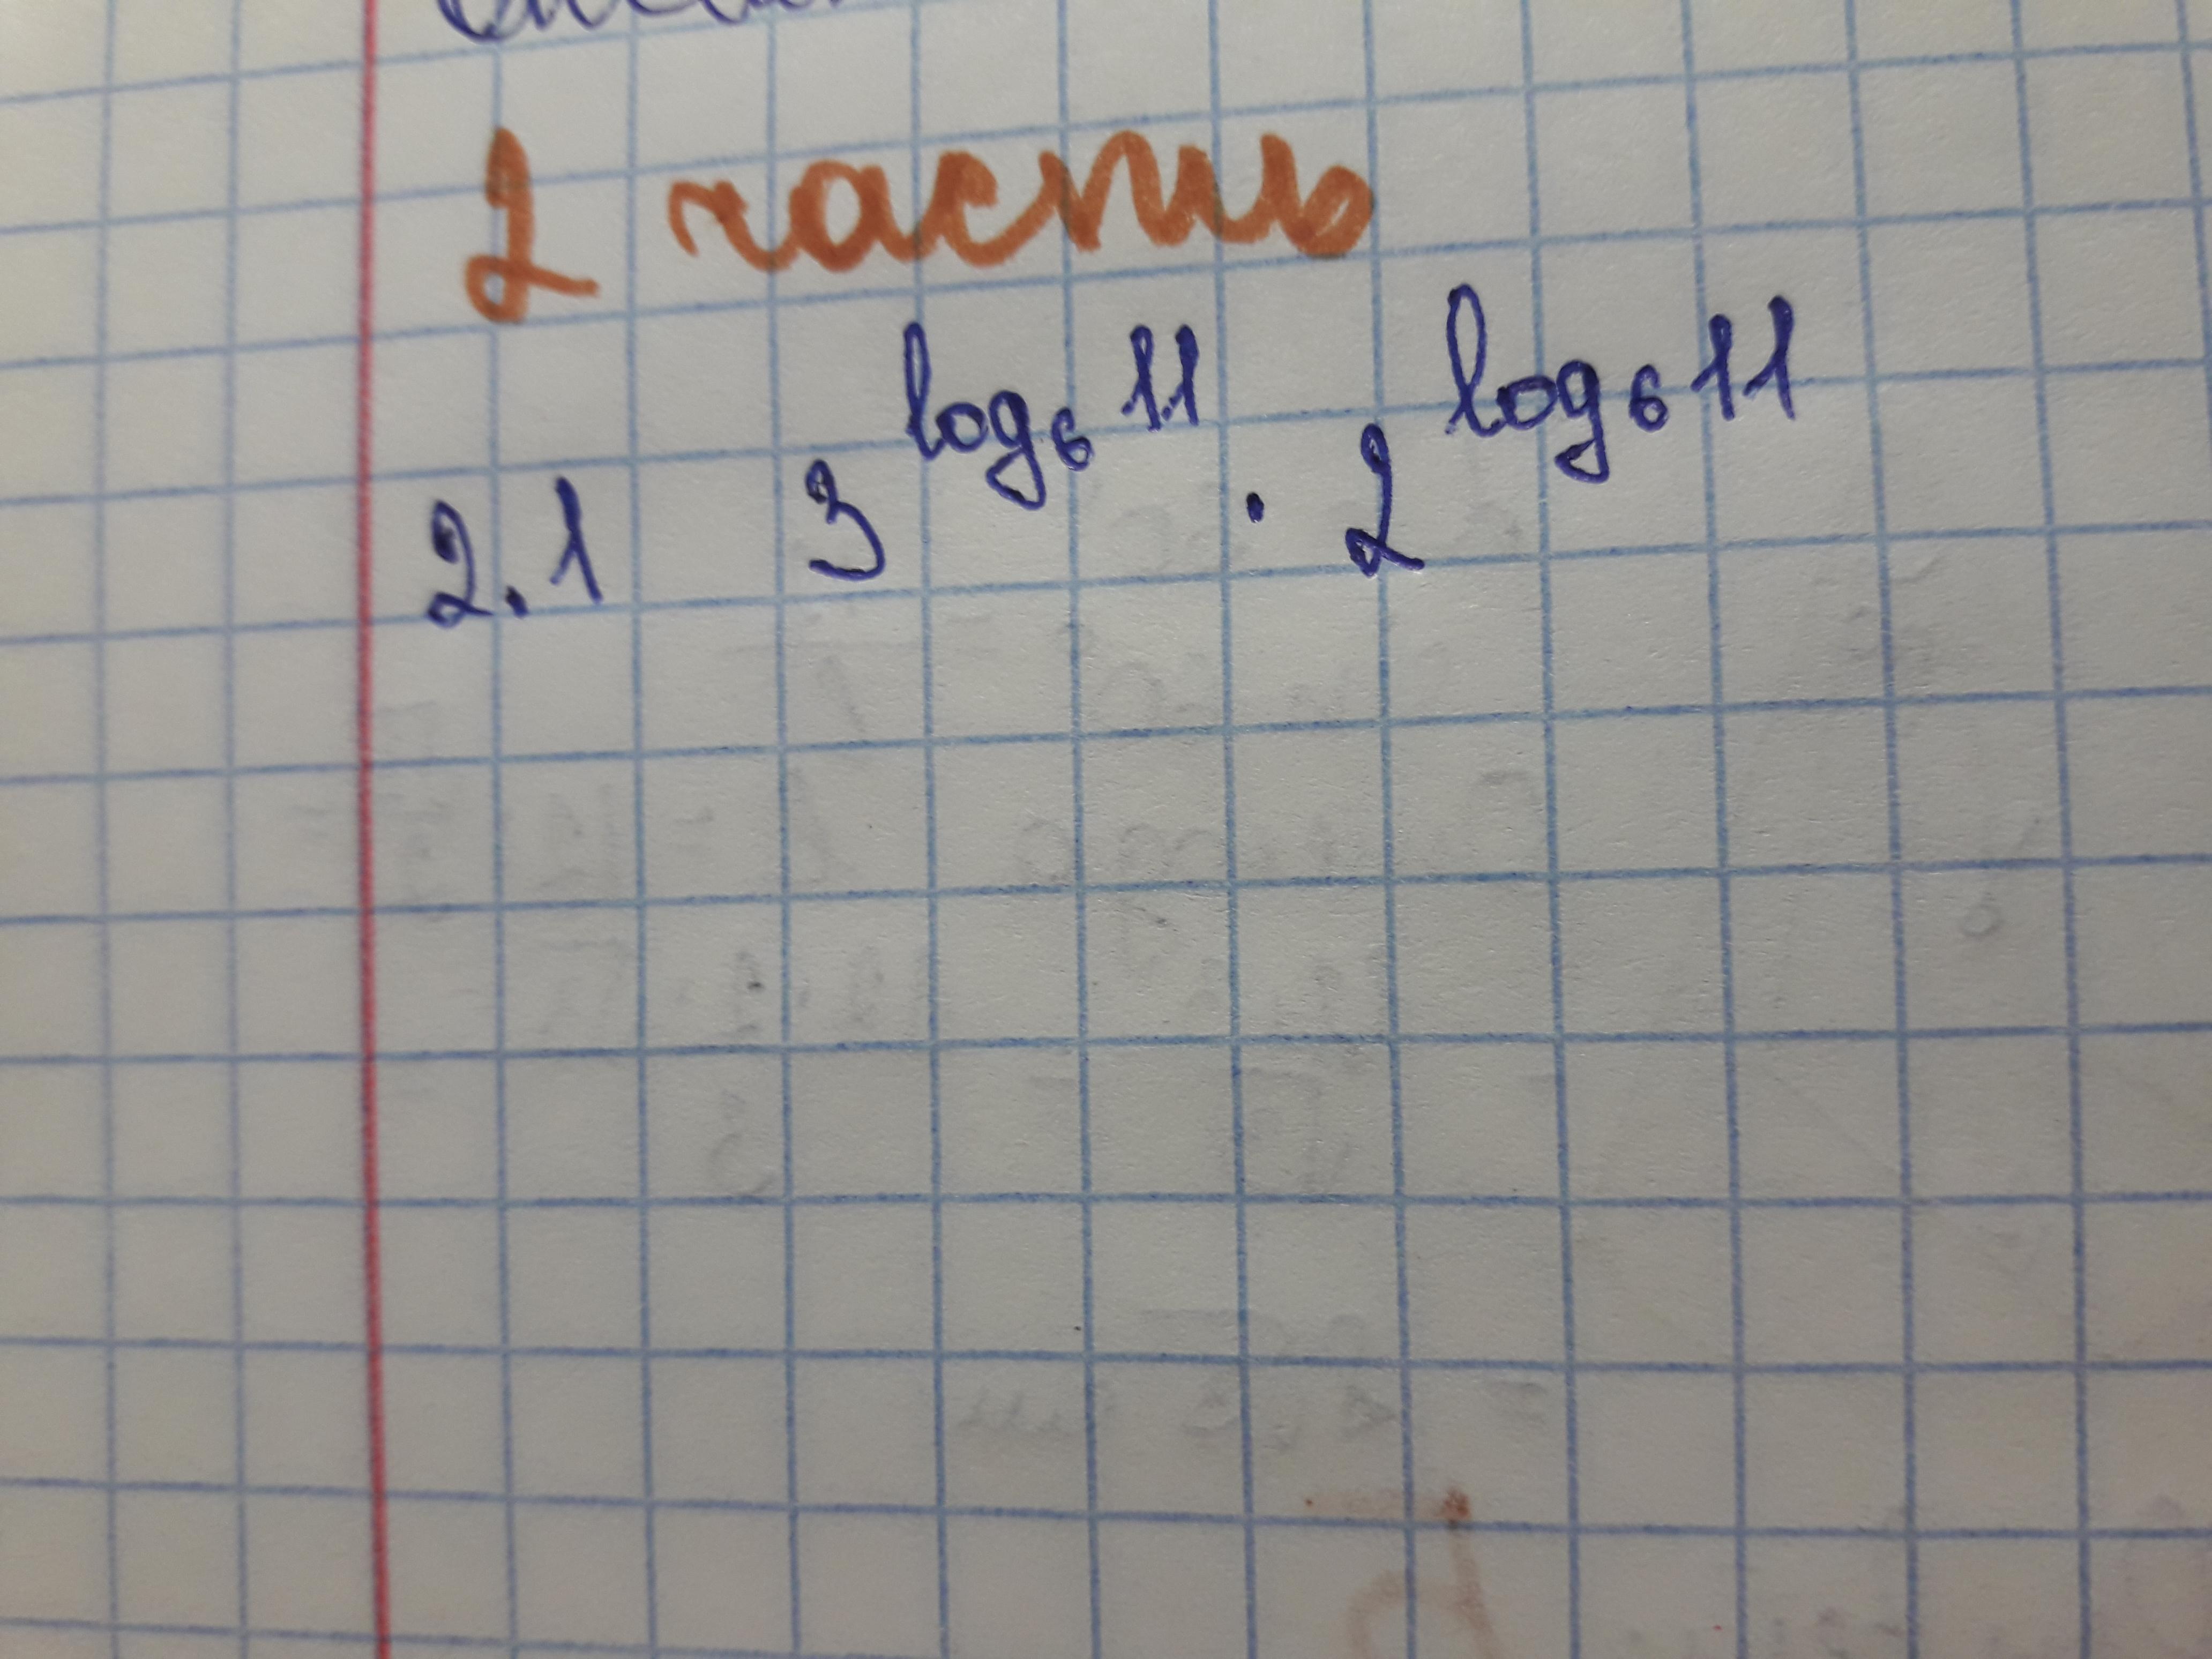 2 часть
2.1 3^log₆11 · 2^log₆11